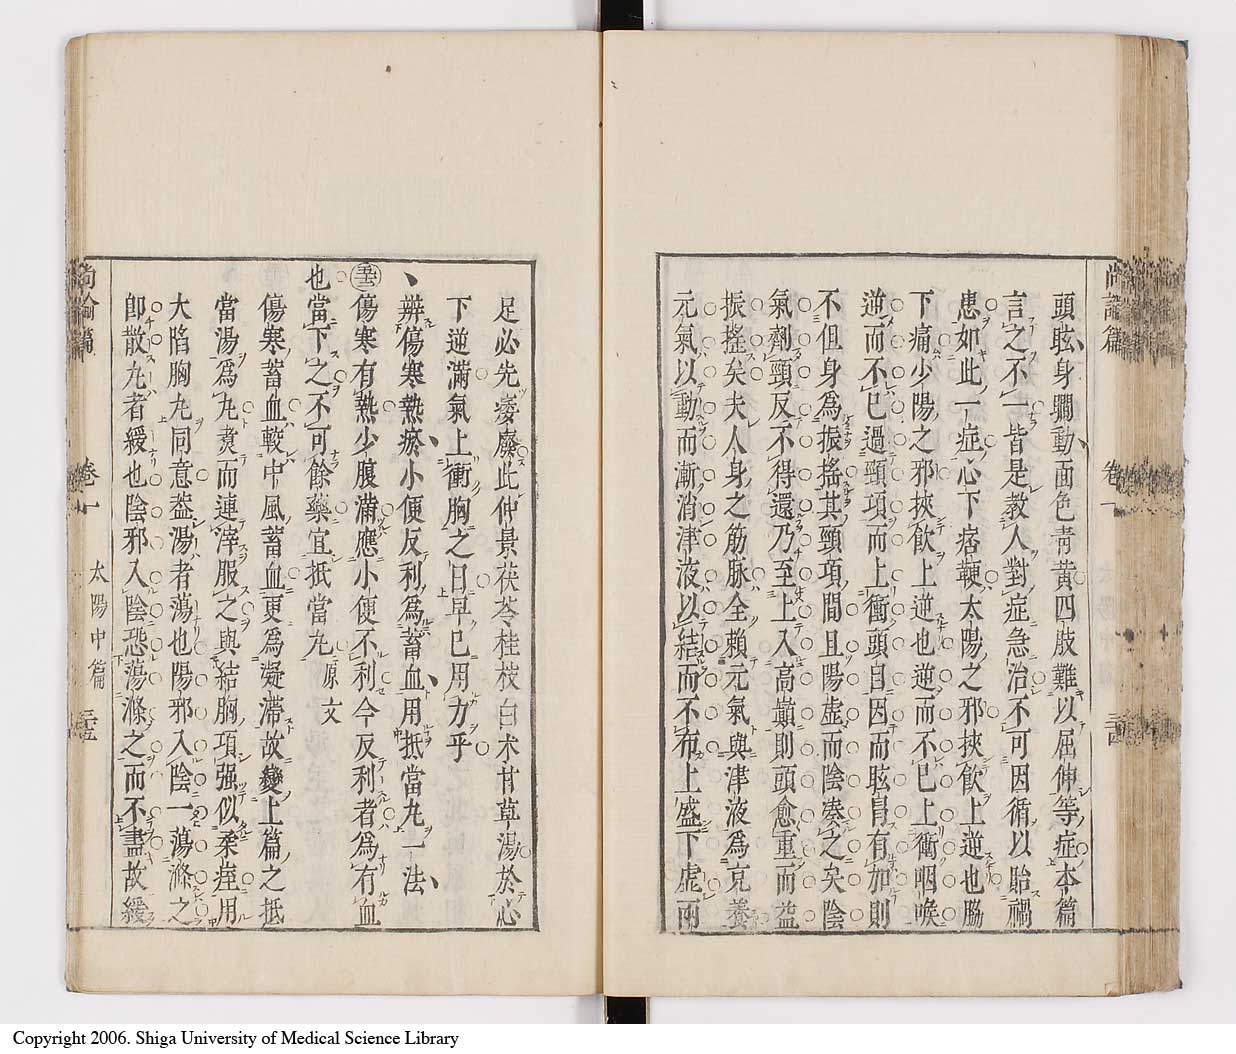 尚論篇 卷一 三四
頭眩身瞤動面色青黃四肢難以屈伸等症本篇
言之不一皆是教人對症急治不可因循以貽禍
患如此一症心下痞鞕太陽之邪挾飲上逆也脇
下痛少陽之邪挾飲上逆也逆而不已上衝咽喉
逆而不已過頸項而上衝頭目因而眩冒有加則
不但身為振搖其頸項間且陽虛而陰凑之矣陰
氣劑頸反不得還乃至上入高巔則頭愈重而益
振搖矣夫人身之筋脉全賴元氣與津液為克養
元氣以動而漸消津液以結而不布上盛下虛兩
足必先痿廢此仲景茯苓桂枝白术甘草湯於心
下逆滿氣上衝胸之日早已用力乎
辨傷寒熱瘀小便反利為蓄血用抵當丸一法
傷寒有熱少腹滿應小便不利今反利者為有血
也當下之不可餘藥宜抵當丸 原文
傷寒蓄血較中風蓄血更為凝滯故變上篇之抵
當湯為丸煑而連滓服之與結胸項强似柔痓用
大陷胸丸同意葢湯者蕩也陽邪入陰一蕩滌之
卽散丸者緩也陰邪入陰恐蕩滌之而不盡故緩
尚論篇 卷一 太陽中篇 三五
Copyright 2006. Shiga University of Medical Science Library